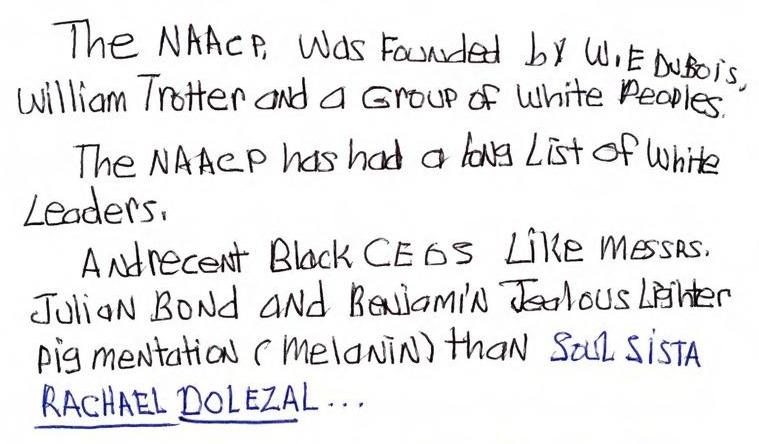 The NAACP, was Founded by W.E DuBois,
William Trotter and a Group of White Peoples.
The NAACP has had a long List of White
Leaders.
And recent Black CEOs Like Messrs.
Julian Bond and Benjamin Jealous Lighter
pigmentation (melanin) than Soul Sista
RACHAEL DOLEZAL...